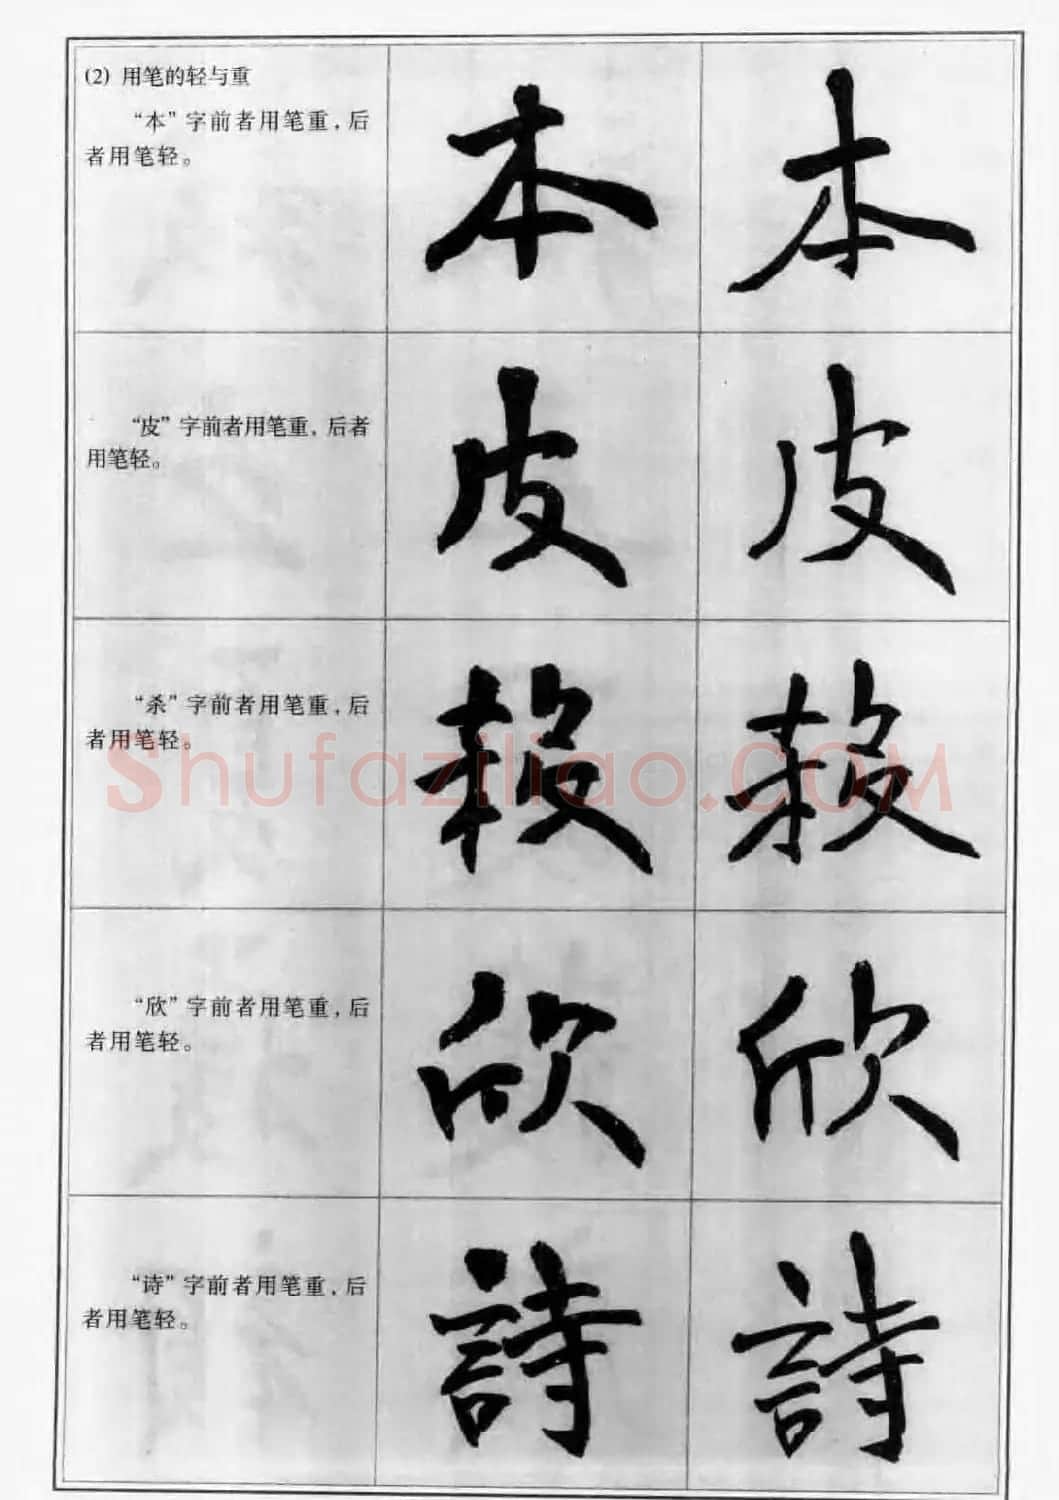 (2) 用笔的轻与重
“本”字前者用笔重，后
者用笔轻。
本 本
“皮”字前者用笔重，后者
用笔轻。
皮 皮
“杀”字前者用笔重，后
者用笔轻。
殺 殺
“欣”字前者用笔重，后
者用笔轻。
欣 欣
“诗”字前者用笔重，后
者用笔轻。
詩 詩
Shufaziliao.COM